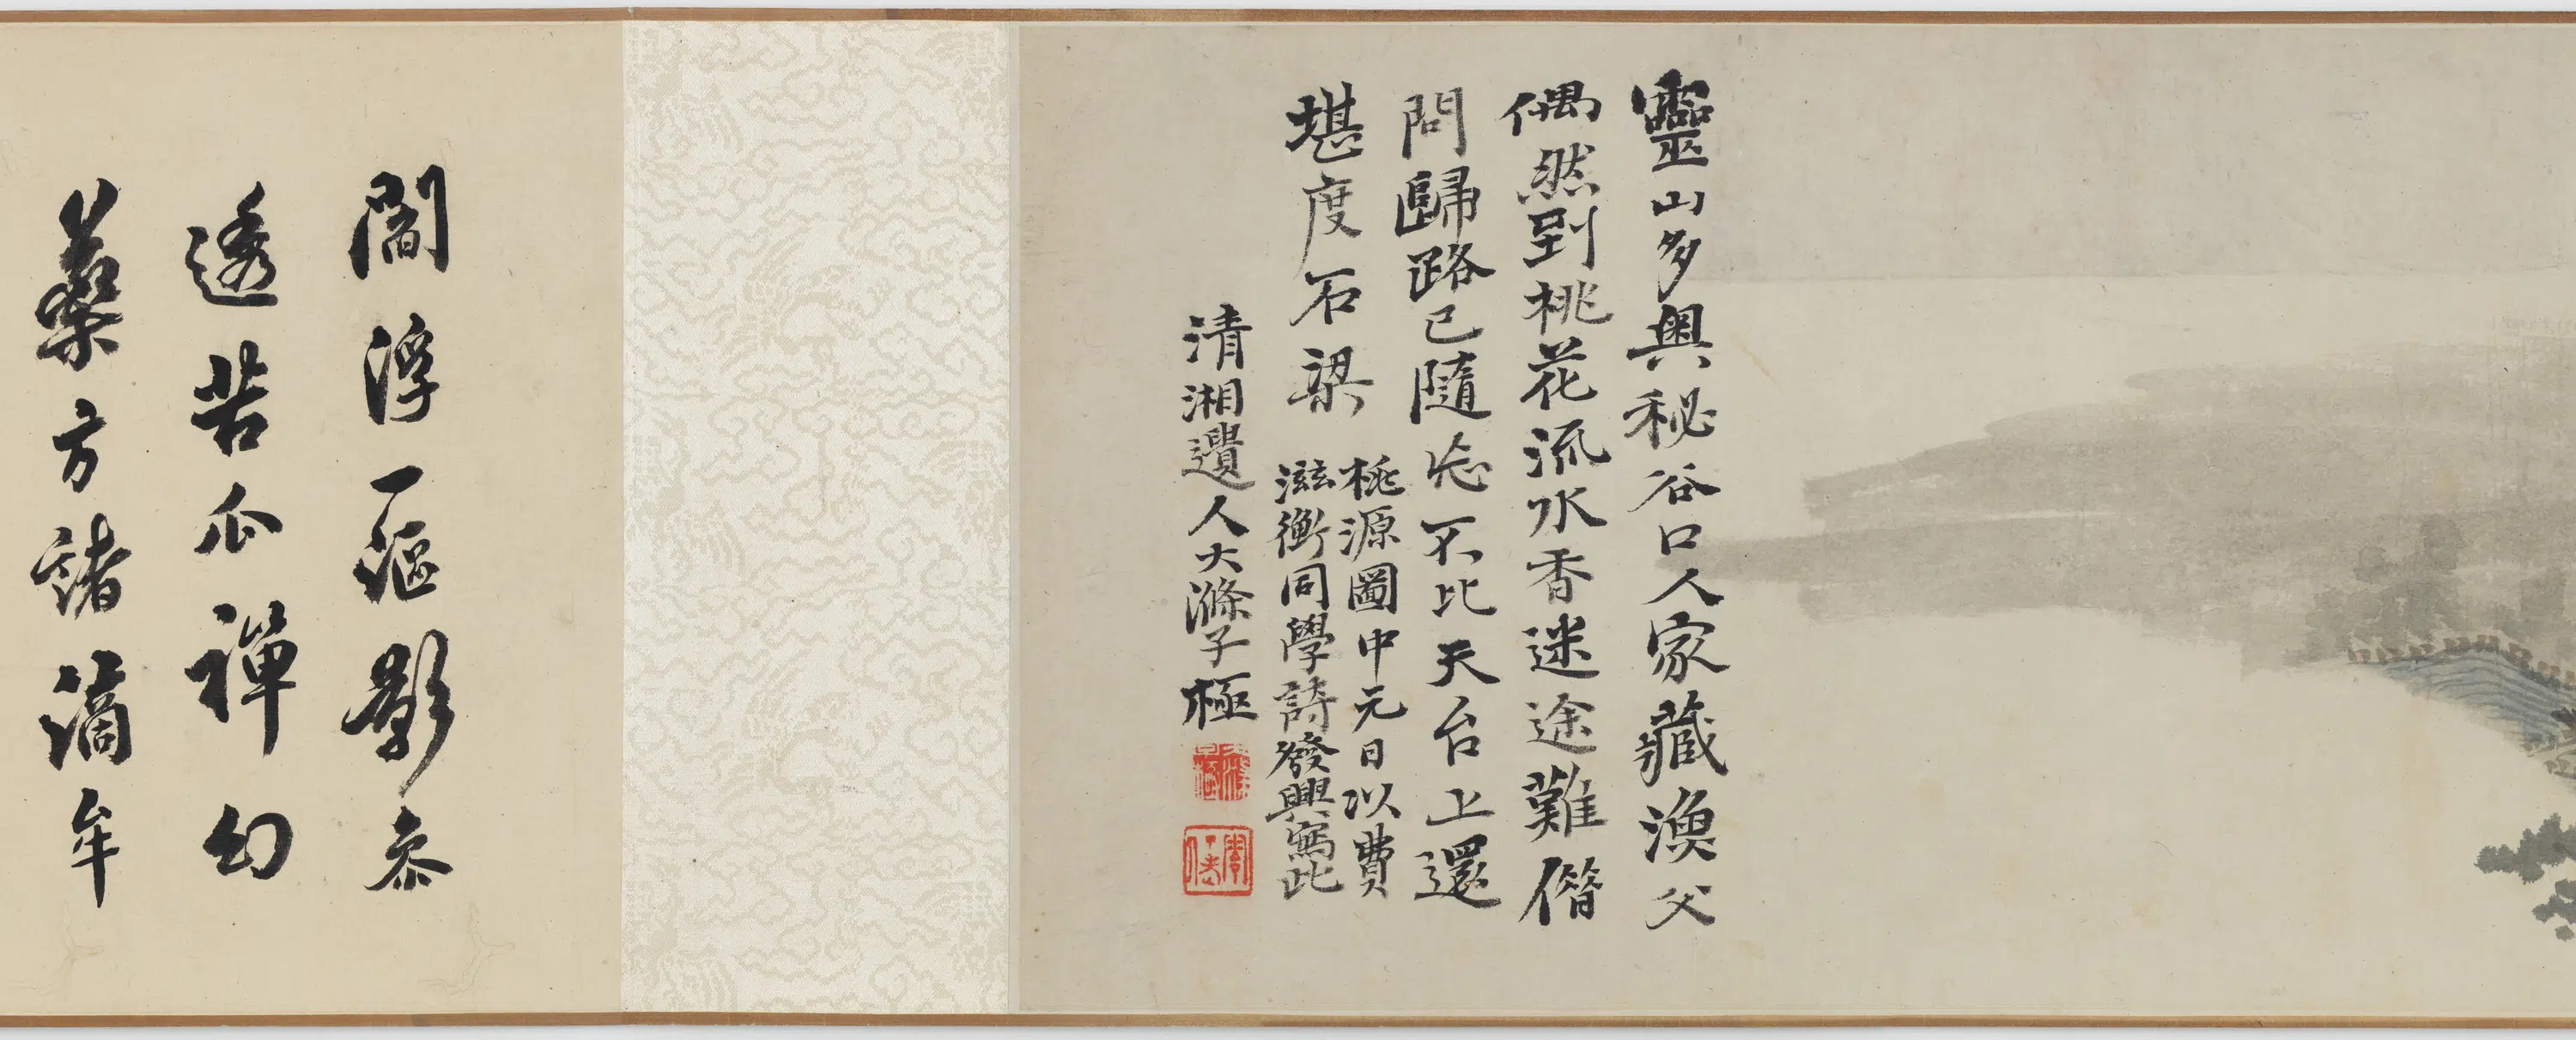 靈山多奧秘谷口人家藏漁父
偶然到桃花流水香迷途難僭
問歸路已隨忘不比天台上還
堪度石梁
桃源圖中元日以費
滋衡同學詩發興寫此
清湘遺人大滌子極
閻浮一漚影忝
透苦瓜禪幻
藥方諸滴牟